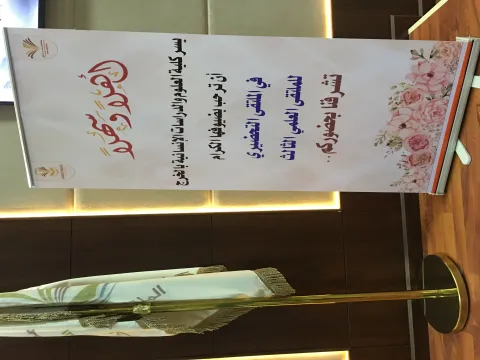 أهلاً وسهلاً
يسر كلية العلوم والدراسات الإنسانية بالخرج
أن ترحب بضيوفها الكرام
في اللقاء التحضيري
للملتقى العلمي الثالث
تشرفنا بحضوركم..